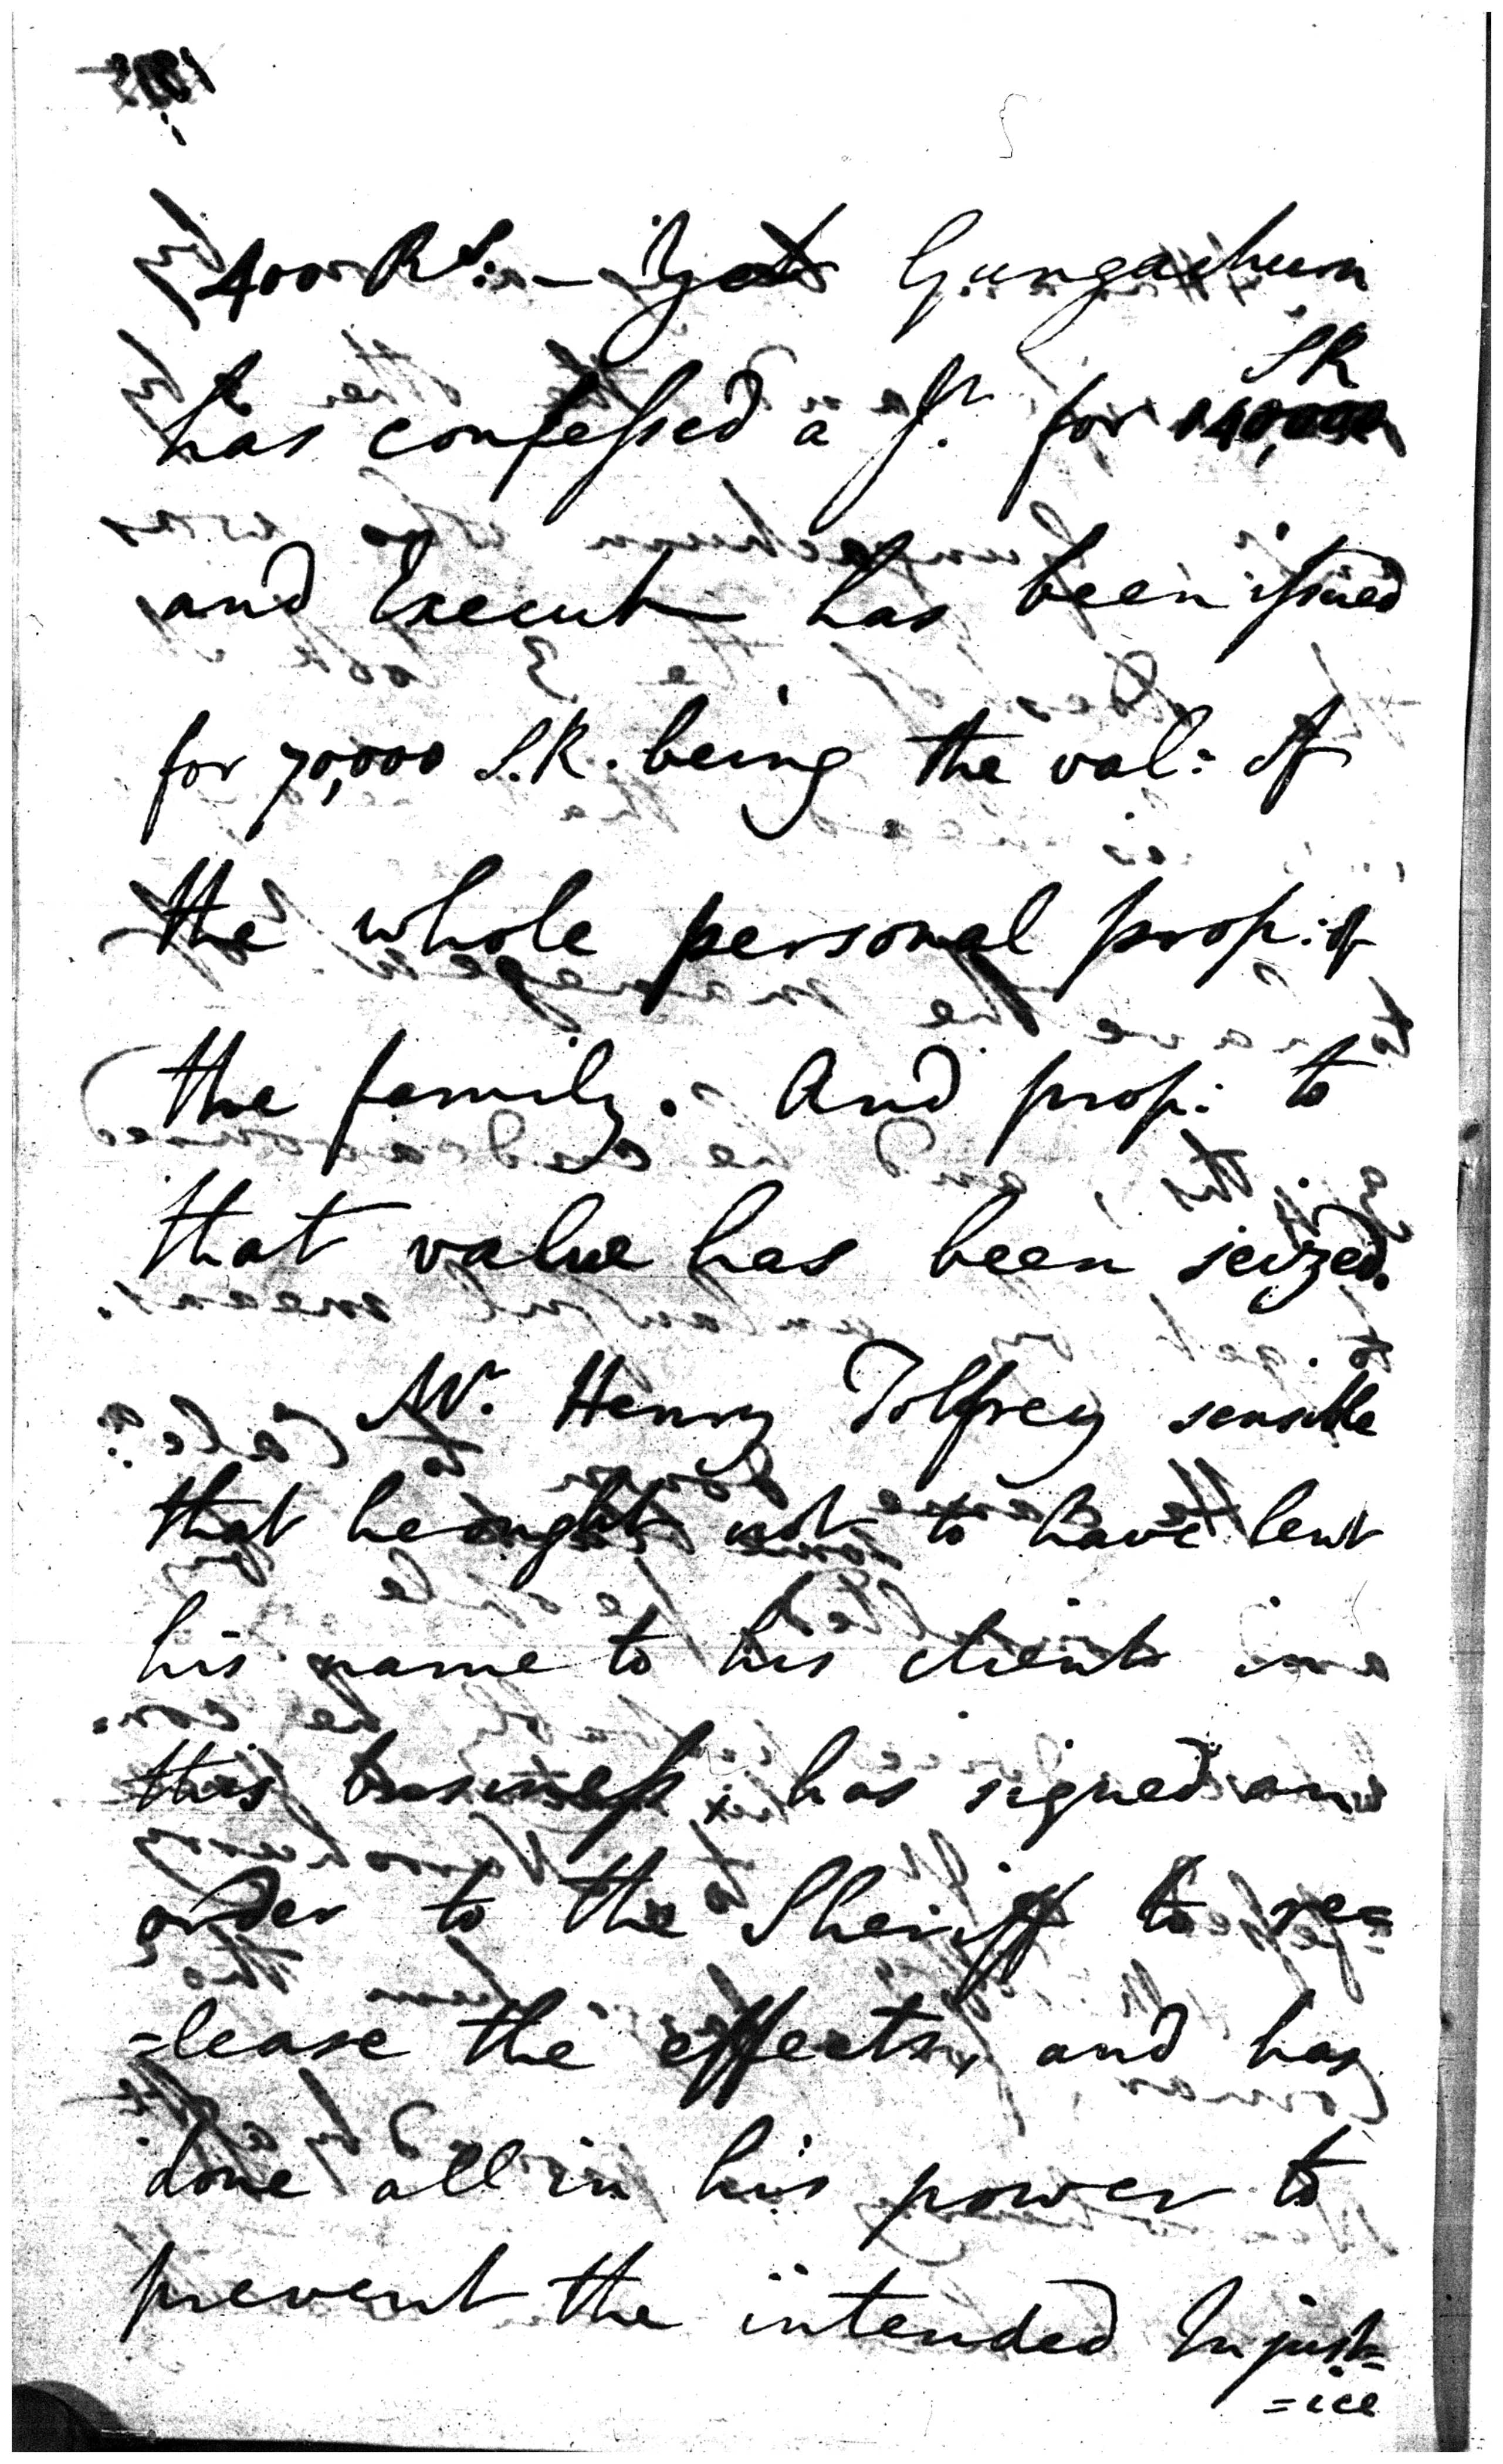 400 Rs. – Yet Gungachurn
S.R
has confessed a Jt. for 140,000
and Execut has been issued
for 70,000 S.R. being the val: of
the whole personal prop: of
the family. And prop: to
that value has been seized.
Mr. Henry Tolfrey sensible
that he ought not to have lent
his name to his client in
this business has signed an
order to the Sheriff to re=
=lease the effects, and has
done all in his power to
prevent the intended Injust=
=ice